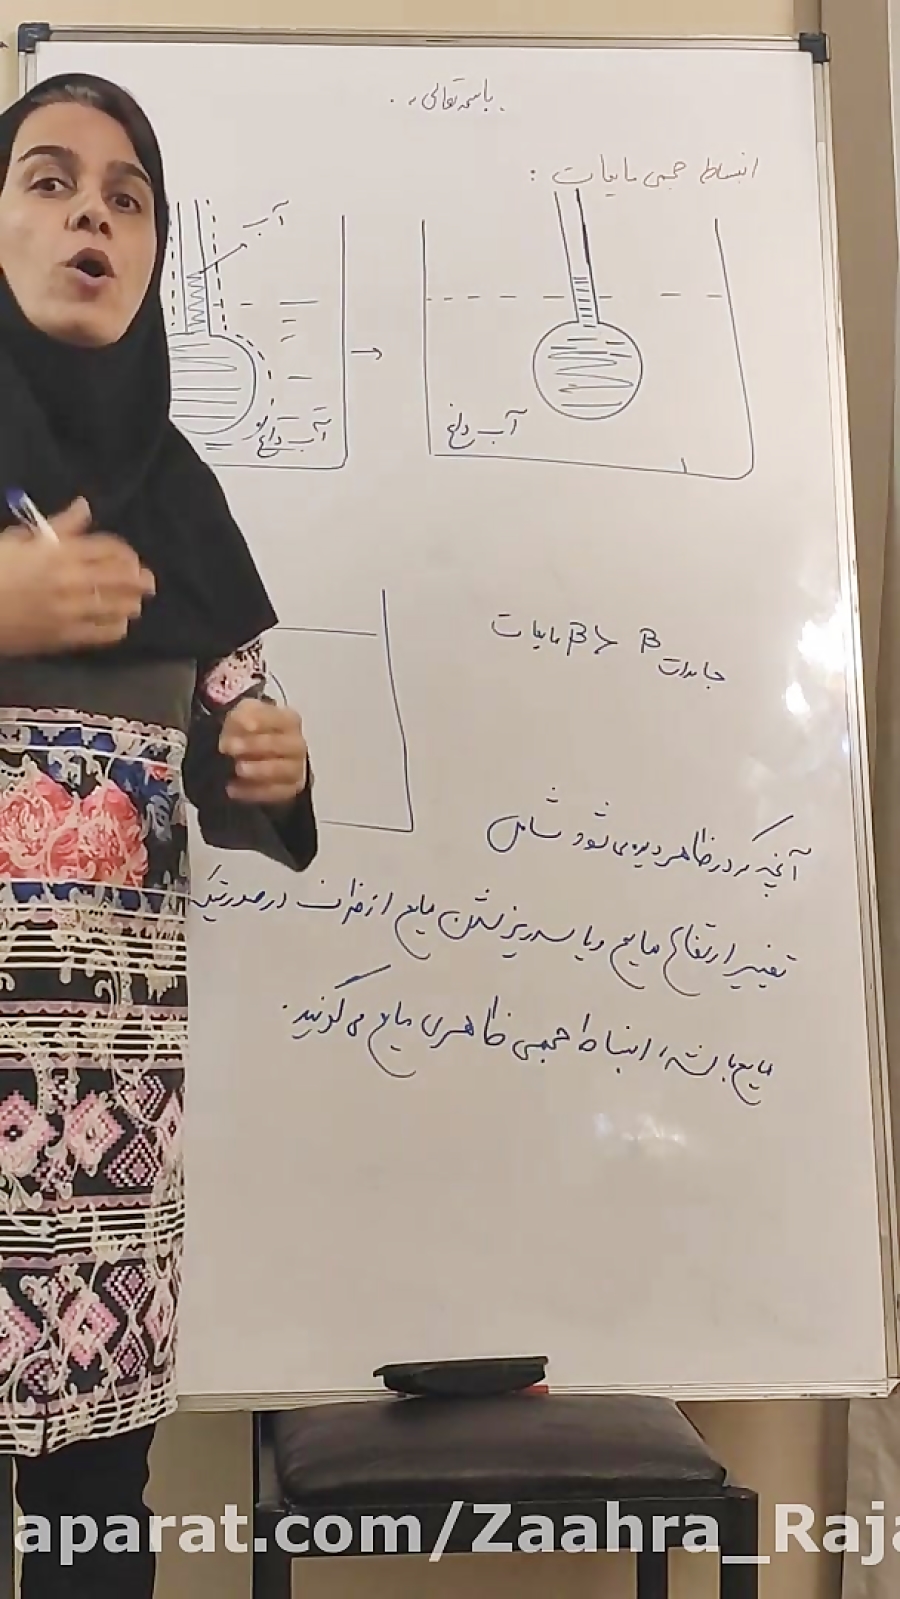 باسمه تعالی
انبساط حجمی مایعات :
آب
آب داغ
آب داغ
β مایعات > β جامدات
آنچه که در ظاهر دیده می شود شامل
تغییر ارتفاع مایع و یا سرریز شدن مایع از ظرف در صورتیکه
مایع باشد، انبساط حجمی ظاهری مایع می گویند.
aparat.com/Zaahra_Raja